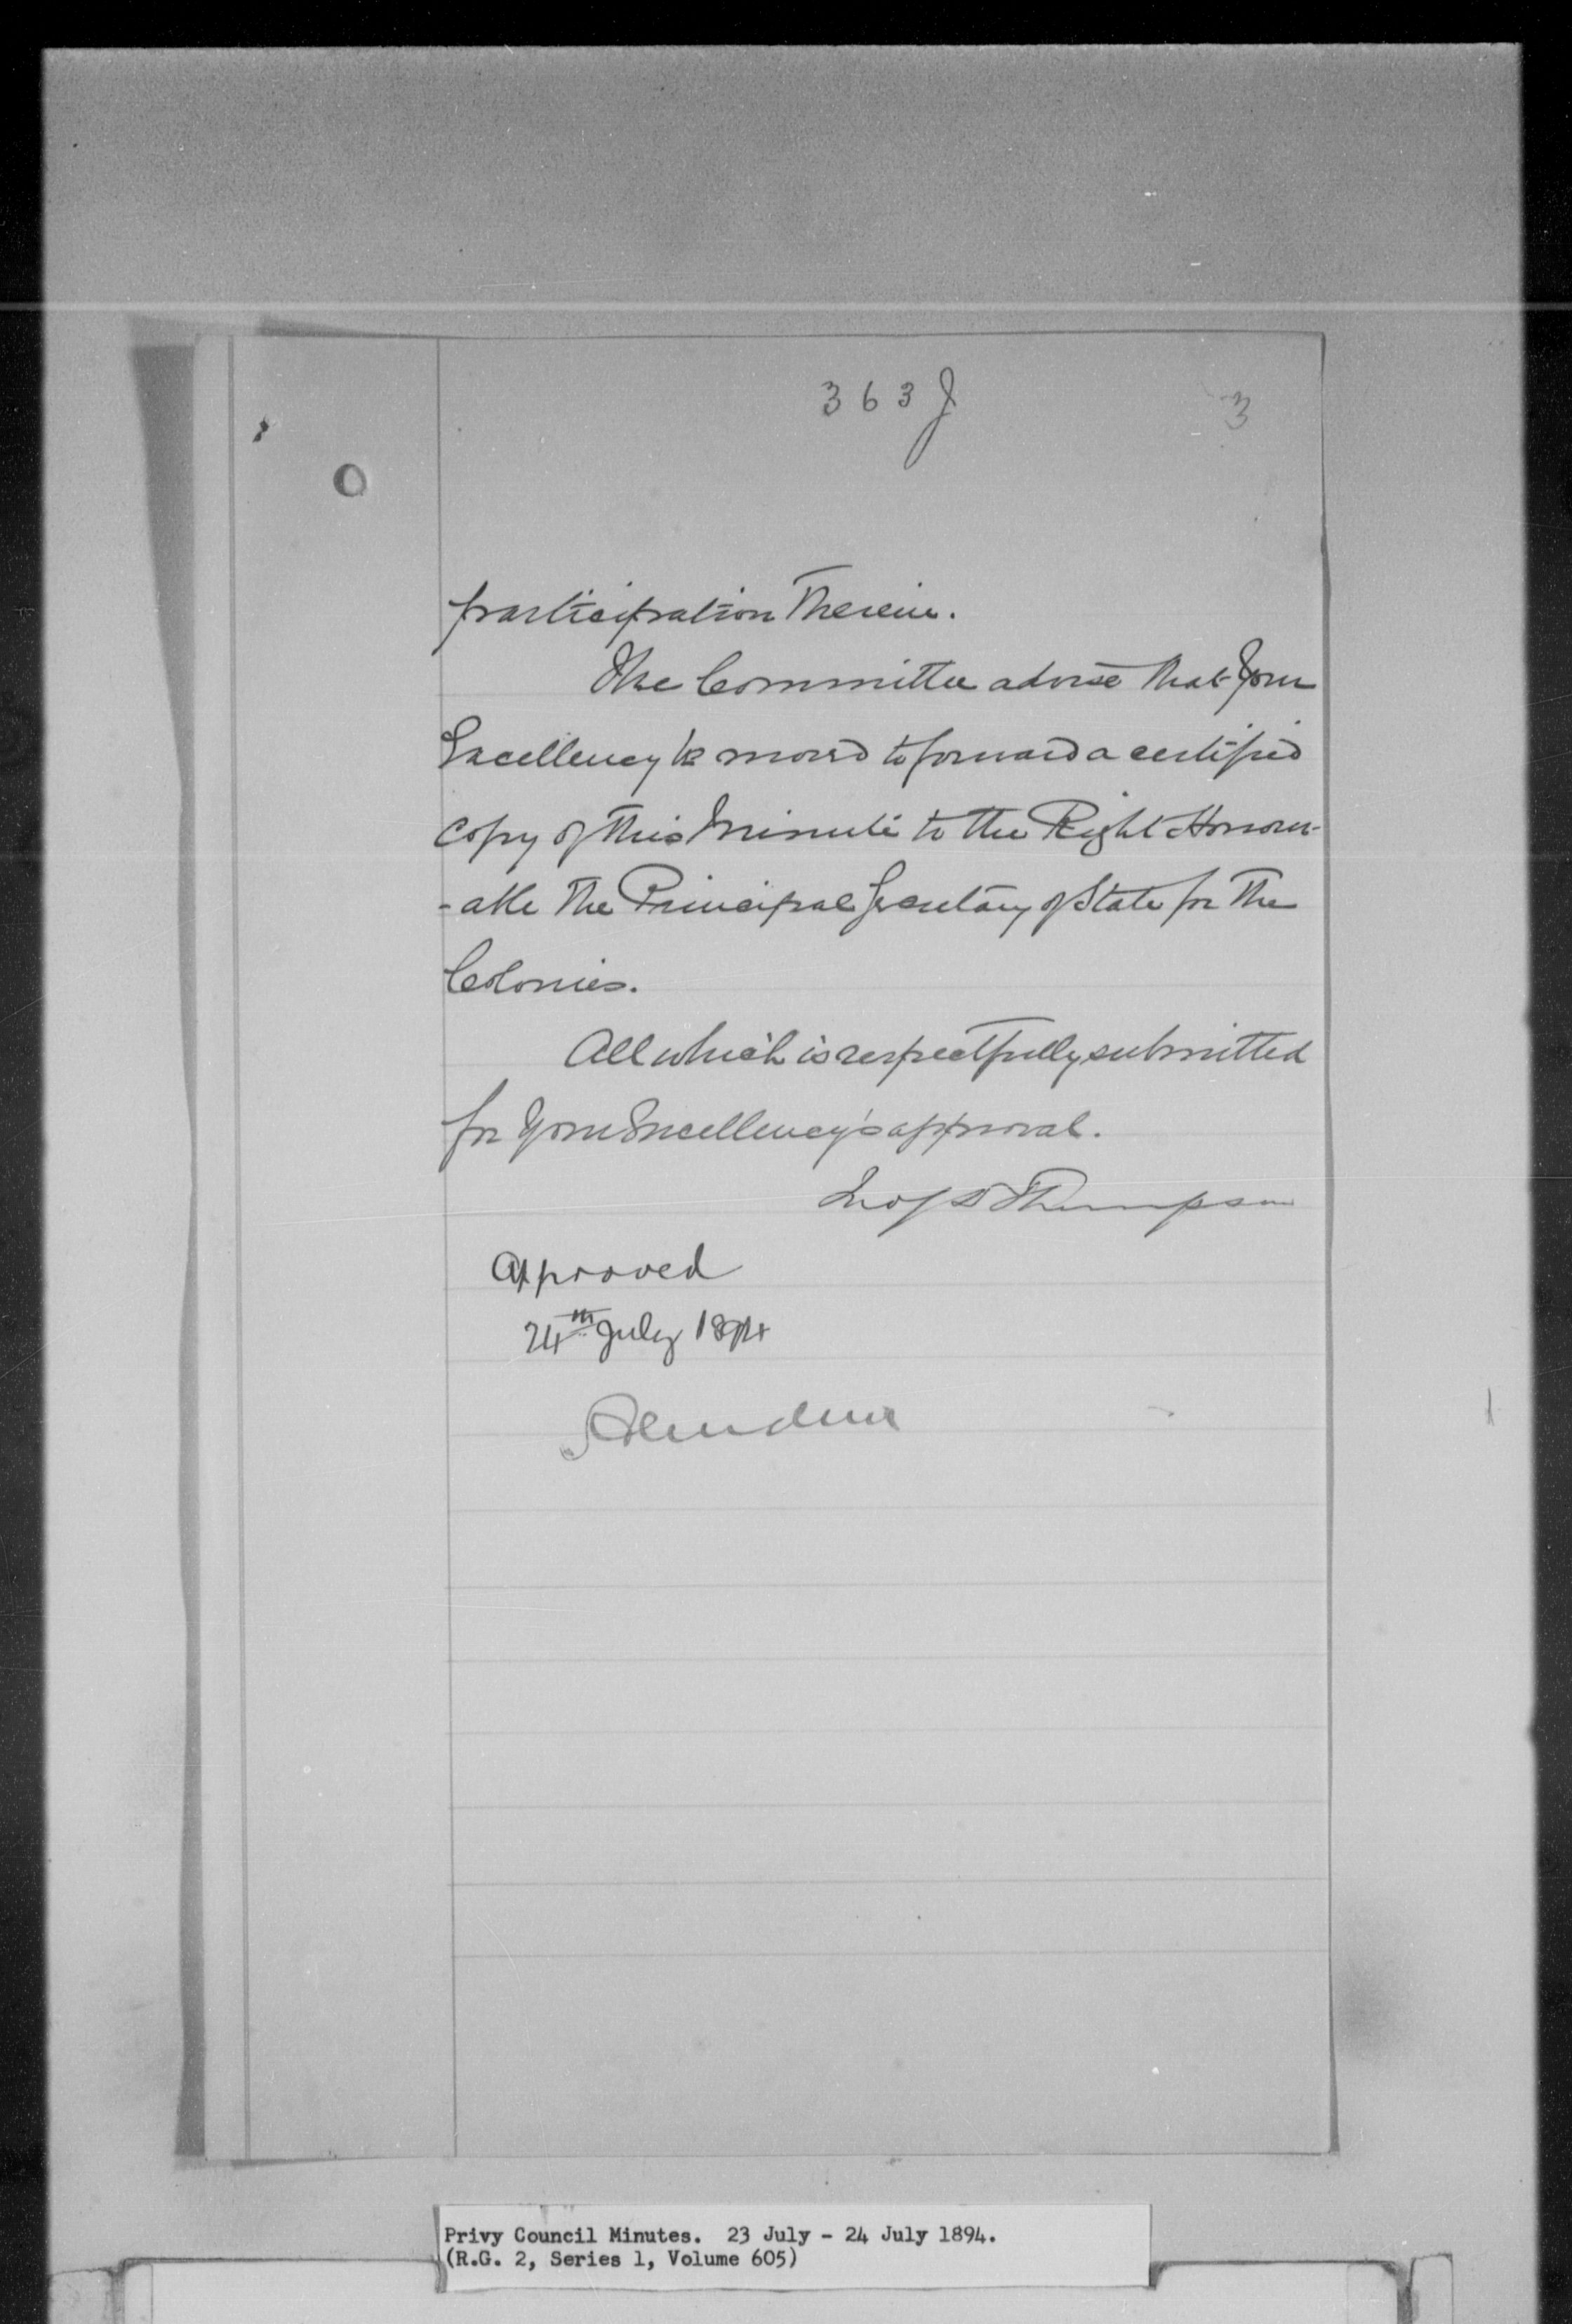 363 J
3
participation therein.
The Committee advise that Your
Excellency be moved to forward a certified
copy of this Minute to the Right Honour-
-able the Principal Secretary of State for the
Colonies.
All which is respectfully submitted
for Your Excellency's approval.
Jno S D Thompson
Approved
24th July 1894
Aberdeen
Privy Council Minutes. 23 July - 24 July 1894.
(R.G. 2, Series 1, Volume 605)